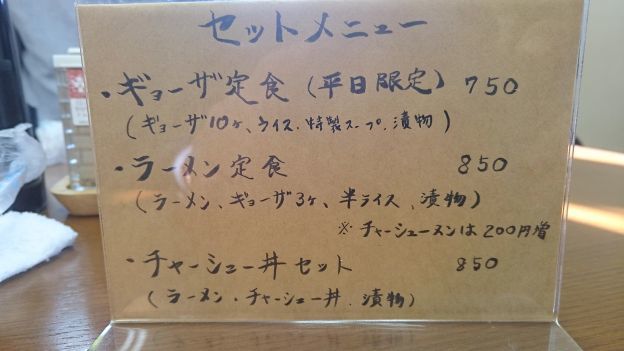 セットメニュー
・ギョーザ定食(平日限定) 750
(ギョーザ10ヶ、ライス、特製スープ、漬物)
・ラーメン定食 850
(ラーメン、ギョーザ3ヶ、半ライス、漬物)
※チャーシューメンは200円増
・チャーシュー丼セット 850
(ラーメン・チャーシュー丼、漬物)